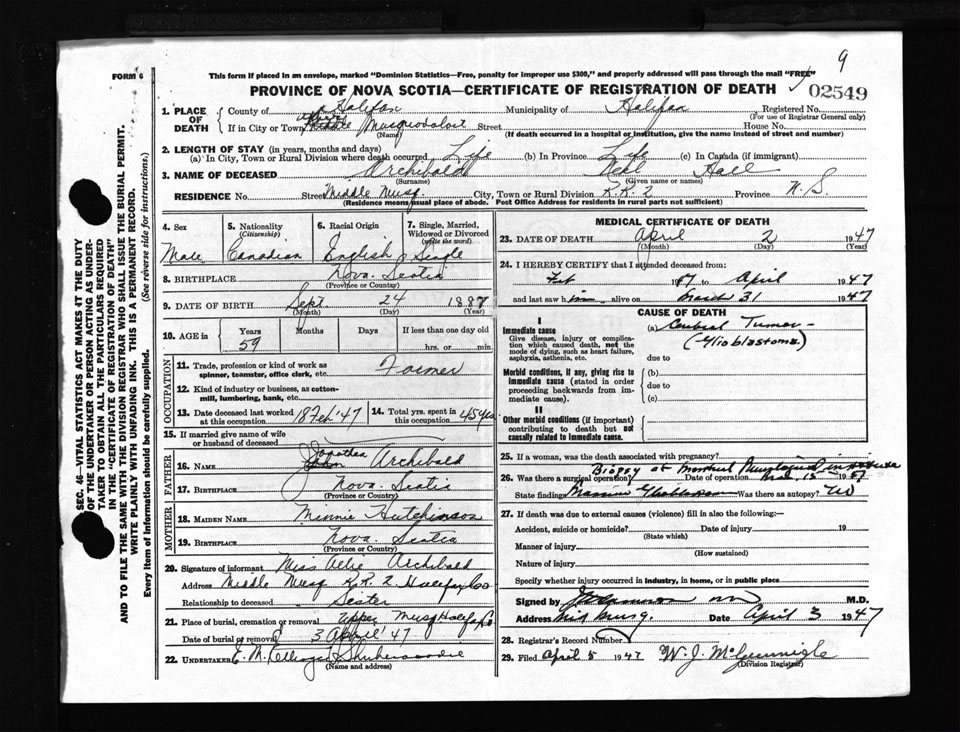 9
FORM 6
This form if placed in an envelope, marked "Dominion Statistics—Free, penalty for improper use $300," and properly addressed will pass through the mail "FREE"
PROVINCE OF NOVA SCOTIA—CERTIFICATE OF REGISTRATION OF DEATH
02549
1. PLACE OF DEATH
County of Halifax Municipality of Halifax Registered No.
(For use of Registrar General only)
If in City or Town Upper Musquodoboit Street House No.
(Name) (If death occurred in a hospital or institution, give the name instead of street and number)
2. LENGTH OF STAY (in years, months and days)
(a) In City, Town or Rural Division where death occurred Life (b) In Province Life (c) In Canada (if immigrant)
3. NAME OF DECEASED Archibald Hall
(Surname) (Given name or names)
RESIDENCE No. Street Middle Musq. City, Town or Rural Division R.R. 2 Province N.S.
(Residence means usual place of abode. Post Office Address for residents in rural parts not sufficient)
4. Sex 5. Nationality (Citizenship) 6. Racial Origin 7. Single, Married, Widowed or Divorced (write the word)
Male Canadian English Single
8. BIRTHPLACE Nova Scotia
(Province or Country)
9. DATE OF BIRTH Sept 24 1887
(Month) (Day) (Year)
10. AGE in Years Months Days If less than one day old
59 hrs. or min.
OCCUPATION
11. Trade, profession or kind of work as spinner, teamster, office clerk, etc. Farmer
12. Kind of industry or business, as cotton-mill, lumbering, bank, etc.
13. Date deceased last worked at this occupation 18 Feb '47 14. Total yrs. spent in this occupation 45 yrs.
15. If married give name of wife or husband of deceased
FATHER
16. NAME Jonathan Archibald
17. BIRTHPLACE Nova Scotia
(Province or Country)
MOTHER
18. MAIDEN NAME Minnie Hutchinson
19. BIRTHPLACE Nova Scotia
(Province or Country)
20. Signature of informant Miss Allie Archibald
Address Middle Musq R.R. 2 Halifax Co
Relationship to deceased Sister
21. Place of burial, cremation or removal Upper Musq Halifax Co
Date of burial or removal 3 April '47
22. UNDERTAKER E. M. Shubenacadie
(Name and address)
MEDICAL CERTIFICATE OF DEATH
23. DATE OF DEATH April 2 1947
(Month) (Day)
24. I HEREBY CERTIFY that I attended deceased from:
Feb 1947 to April 1947
and last saw him alive on March 31 1947
CAUSE OF DEATH
I
Immediate cause (a) Cerebral Tumor—
Give disease, injury or complication which caused death, not the mode of dying, such as heart failure, asphyxia, asthenia, etc.
(Glioblastoma)
due to
Morbid conditions, if any, giving rise to immediate cause (stated in order proceeding backwards from immediate cause).
(b)
due to
(c)
II
Other morbid conditions (if important) contributing to death but not causally related to immediate cause.
25. If a woman, was the death associated with pregnancy?
Biopsy at Montreal Neurological Institute
26. Was there a surgical operation? Date of operation Mar 15 1947
State findings Massive Glioblastoma Was there an autopsy? No
27. If death was due to external causes (violence) fill in also the following:—
Accident, suicide or homicide? Date of injury 19
(State which)
Manner of injury
(How sustained)
Nature of injury
Specify whether injury occurred in industry, in home, or in public place
Signed by M.D.
Address Mid Musq. Date April 3 1947
28. Registrar's Record Number
29. Filed April 5 1947 W. J. McGunnigle
(Division Registrar)
SEC. 46—VITAL STATISTICS ACT MAKES AT THE DUTY
OF THE UNDERTAKER OR PERSON ACTING AS UNDER-
TAKER TO OBTAIN ALL THE PARTICULARS REQUIRED
IN THE "CERTIFICATE OF REGISTRATION OF DEATH"
AND TO FILE THE SAME WITH THE DIVISION REGISTRAR WHO SHALL ISSUE THE BURIAL PERMIT.
WRITE PLAINLY WITH UNFADING INK. THIS IS A PERMANENT RECORD.
Every item of information should be carefully supplied. (See reverse side for instructions.)